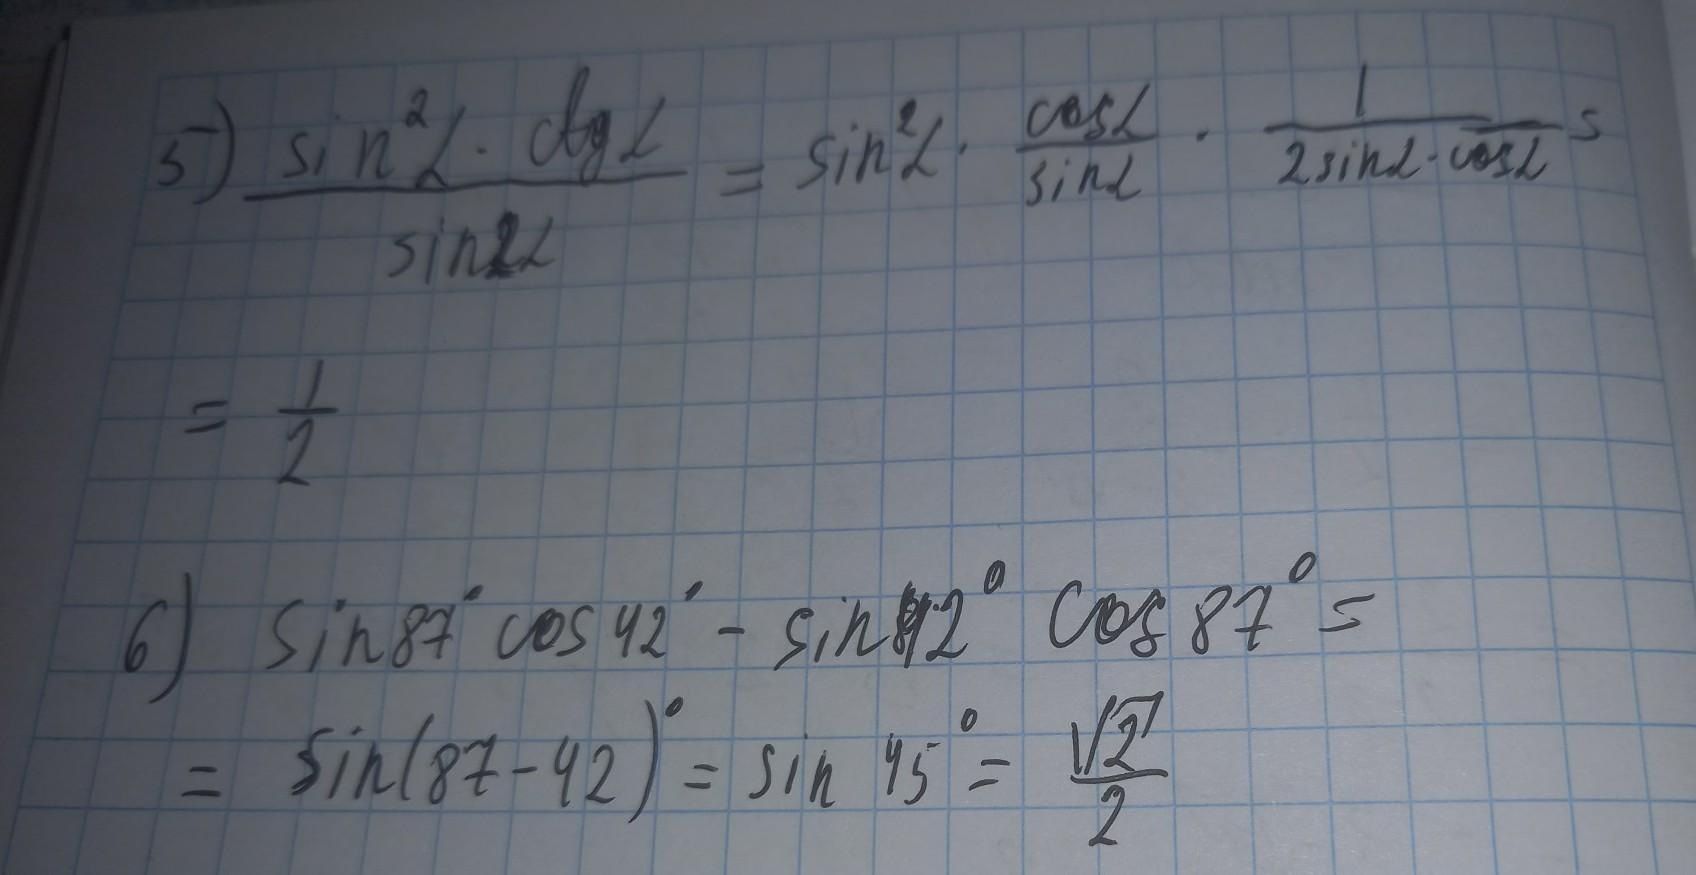 5) sin²α · ctgα / sin2α = sin²α · cosα / sinα · 1 / 2sinα·cosα =
= 1/2
6) sin87° cos42° - sin42° cos87° =
= sin(87-42)° = sin 45° = √2/2